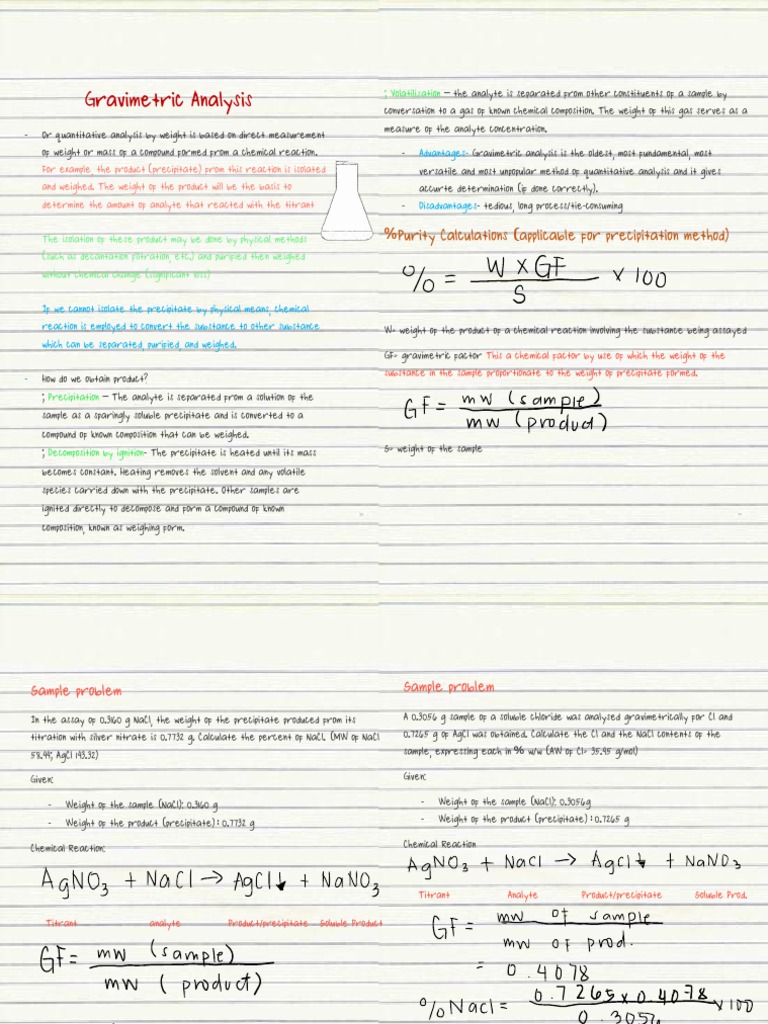 Gravimetric Analysis
- Or quantitative analysis by weight is based on direct measurement
of weight or mass of a compound formed from a chemical reaction.
For example, the product (precipitate) from this reaction is isolated
and weighed. The weight of the product will be the basis to
determine the amount of analyte that reacted with the titrant
The isolation of these product may be done by physical methods
(such as decantation filtration, etc.) and purified then weighed
without chemical change (significant loss)
If we cannot isolate the precipitate by physical means, chemical
reaction is employed to convert the substance to other substance
which can be separated, purified, and weighed.
- How do we obtain product?
; Precipitation – The analyte is separated from a solution of the
sample as a sparingly soluble precipitate and is converted to a
compound of known composition that can be weighed.
; Decomposition by ignition- The precipitate is heated until its mass
becomes constant. Heating removes the solvent and any volatile
species carried down with the precipitate. Other samples are
ignited directly to decompose and form a compound of known
composition, known as weighing form.
; Volatilization – the analyte is separated from other constituents of a sample by
conversation to a gas of known chemical composition. The weight of this gas serves as a
measure of the analyte concentration.
- Advantages- Gravimetric analysis is the oldest, most fundamental, most
versatile and most unpopular method of quantitative analysis and it gives
accurte determination (if done correctly).
- Disadvantages- tedious, long process/tie-consuming
%Purity Calculations (applicable for precipitation method)
% = W x GF / S x 100
W= weight of the product of a chemical reaction involving the substance being assayed
GF= gravimetric factor This a chemical factor by use of which the weight of the
substance in the sample proportionate to the weight of precipitate formed.
GF = mw (sample) / mw (product)
S= weight of the sample
Sample problem
In the assay of 0.3160 g NaCl, the weight of the precipitate produced from its
titration with silver nitrate is 0.7732 g. Calculate the percent of NaCl. (MW of NaCl
58.44; AgCl 143.32)
Given:
- Weight of the sample (NaCl): 0.3160 g
- Weight of the product (precipitate) : 0.7732 g
Chemical Reaction:
AgNO3 + NaCl → AgCl↓ + NaNO3
Titrant analyte Product/precipitate Soluble Product
GF = mw (sample) / mw ( product)
Sample problem
A 0.3056 g sample of a soluble chloride was analysed gravimetrically for Cl and
0.7265 g of AgCl was obtained. Calculate the Cl and the NaCl contents of the
sample, expressing each in % w/w (AW of Cl= 35.45 g/mol)
Given:
- Weight of the sample (NaCl): 0.3056g
- Weight of the product (precipitate) : 0.7265 g
Chemical Reaction
AgNO3 + NaCl → AgCl↓ + NaNO3
Titrant Analyte Product/precipitate Soluble Prod.
GF = mw of sample / mw of prod.
= 0.4078
%NaCl = 0.7265 x 0.4078 / 0.3056 x100